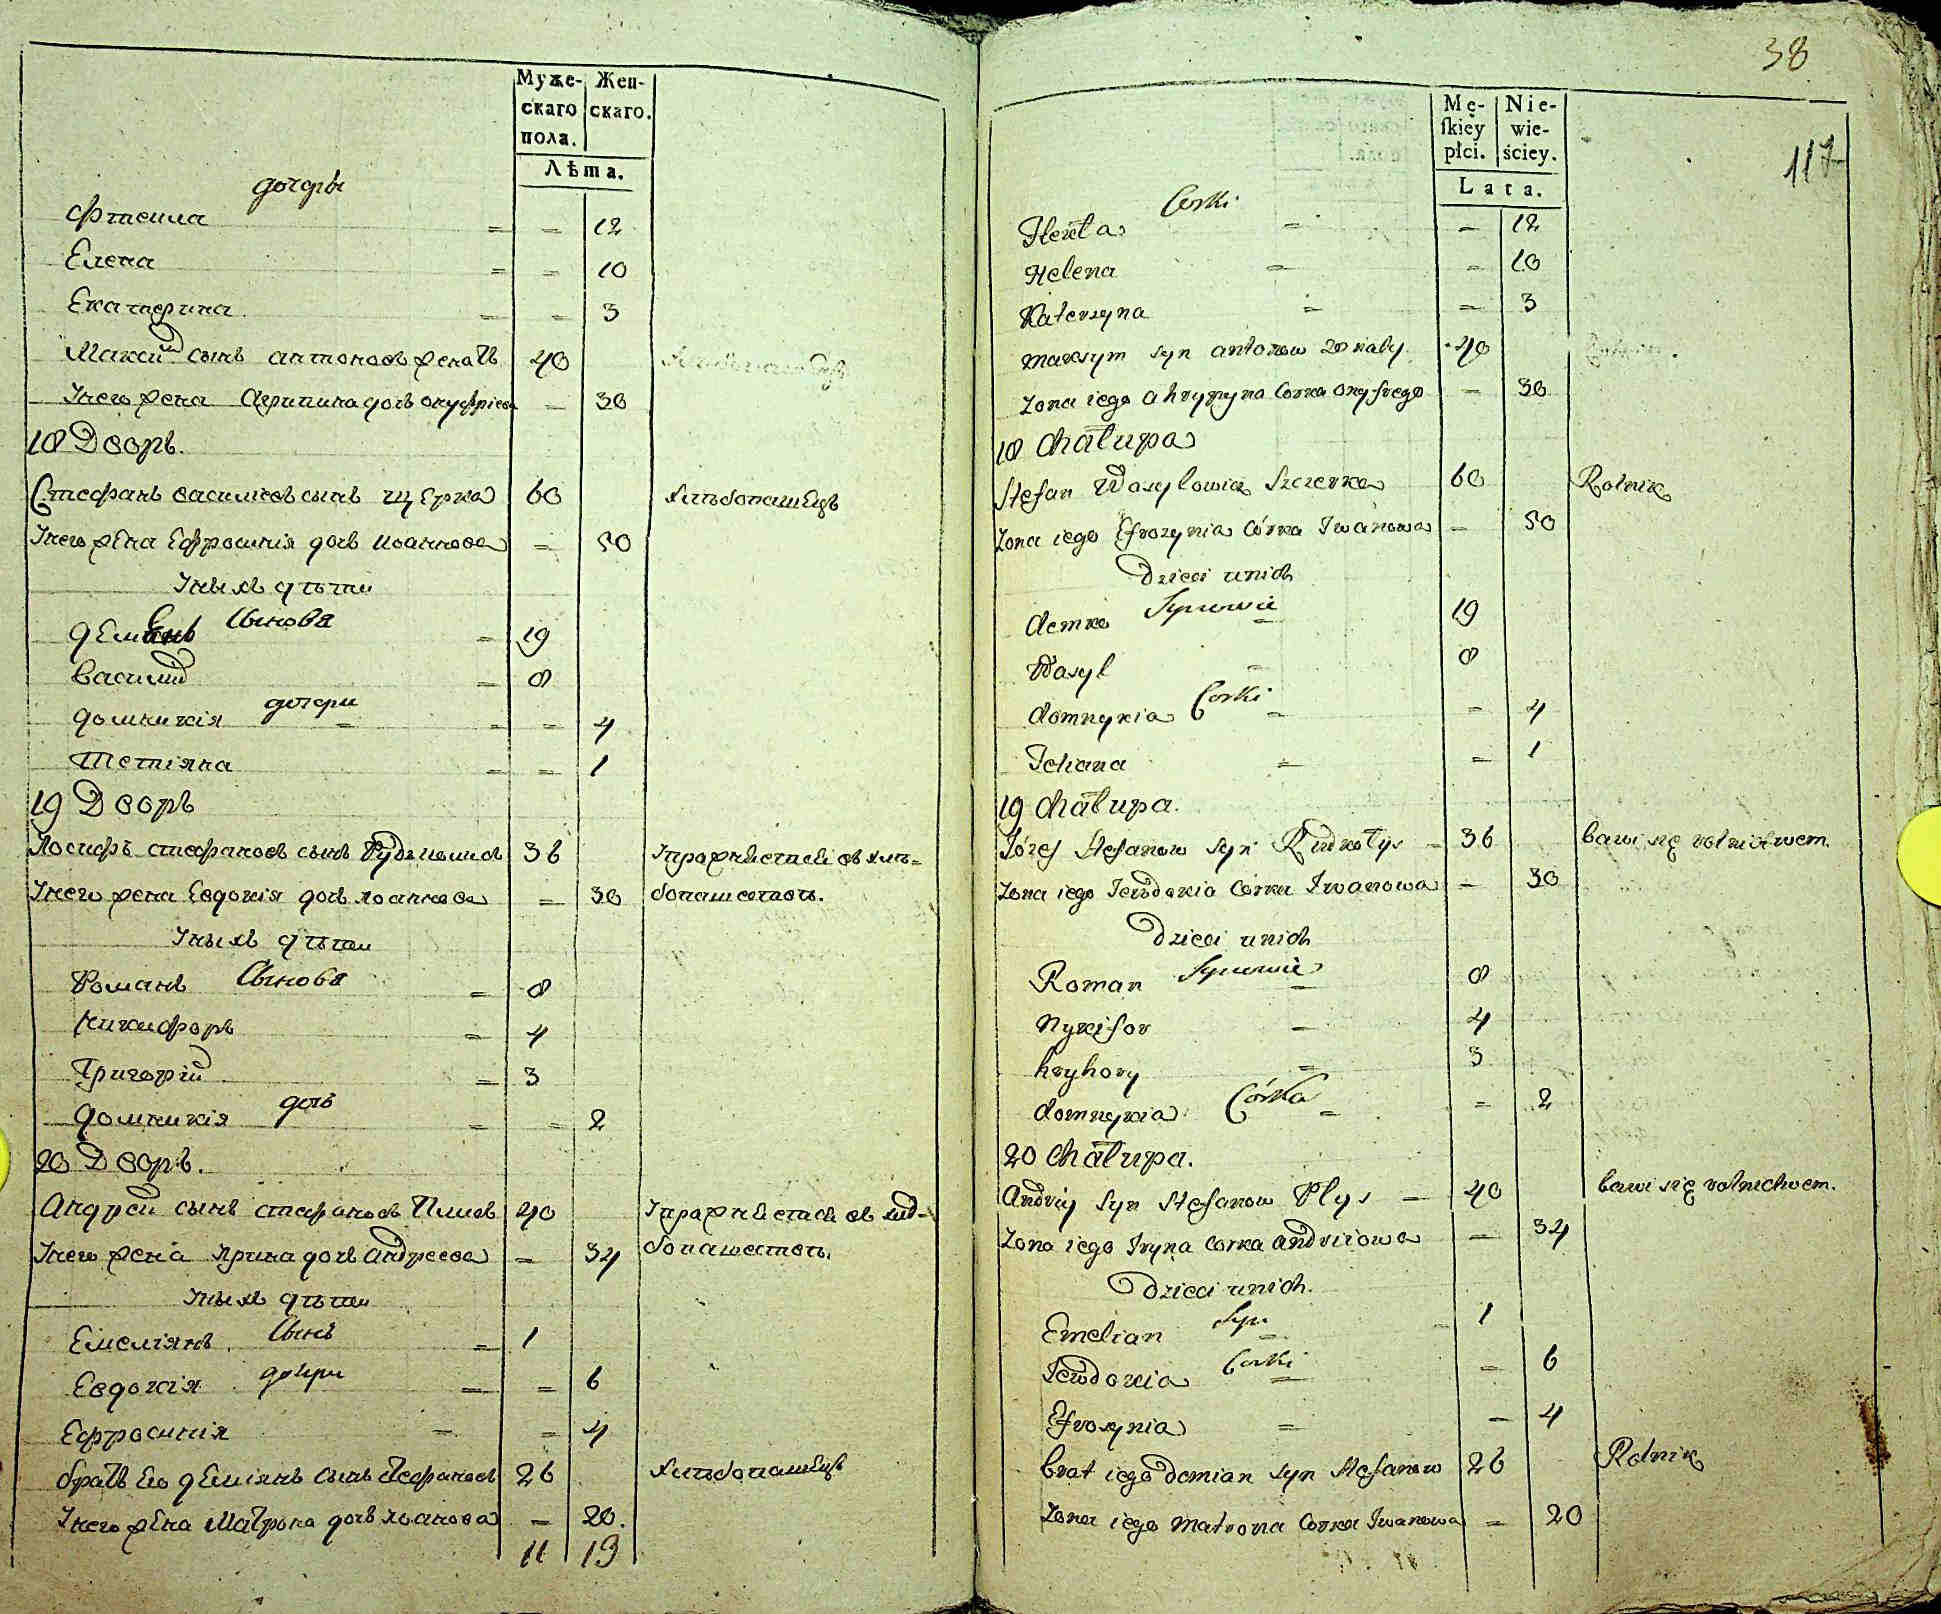 Муже-
скаго
пола.
Жен-
скаго.
Лѣта.
дочери
12
Елена = — 10
Екатерина = — 3
сынъ антоновъ женатъ 40
Унего жена Агрипина дочь онуфріева — 30
18 Дворъ.
Стефанъ васильевъ сынъ щерка 60 хлѣбопашецъ
Унего жена Ефросинія дочь иоаннова — 50
Унихъ дѣти
Сынова
= 19
Василий = 8
дочери
домникія = — 4
Тетіяна = — 1
19 Дворъ
Иосифъ стефановъ сынъ 36 Упражняется въ хлѣ=
Унего жена Евдокія дочь иоаннова — 30 бопашествѣ.
Унихъ дѣти
Сынова
Романъ = 8
Никифоръ = 4
Григорій = 3
дочь
Домникія = — 2
20 Дворъ.
Андрей сынъ стефановъ Плисъ 40 Упражняется въ хлѣ=
Унего жена Ирина дочь Андреева — 34 бопашествѣ.
Унихъ дѣти
Сынъ
Емеліянъ = 1
дочери
Евдокія = — 6
Ефросинія = — 4
братъ Его дЕміянъ сынъ стефановъ 26 хлѣбопашецъ
Унего жЕна Матрона дочь иоанова — 20.
11 13
38
117
Mę-
ſkiéy
płci.
Nie-
wie-
ściey.
Lata.
Corki
= — 12
Helena = — 10
Katerzyna = — 3
Maxsym syn antonow żonaty 40
Zona iego ahrypyna Corka Onyfrego — 30
18 Chałupa
Stefan Wasylowicz Szczerka 60 Rolnik
Zona iego Efrozynia Córka Iwanowa — 50
Dzieci unich
Synowie
demko = 19
Wasyl = 8
Corki
domnykia = — 4
Tetiana = — 1
19 Chałupa.
Józef Stefanow syn 36 bawi się rolnictwem.
Zona iego Iewdokia Corka Iwanowa — 30
Dzieci unich
Synowie
Roman = 8
Nykifor — 4
hryhory = 3
Córka
domnykia = — 2
20 Chałupa.
Andriy syn Stefanow Plys — 40 bawi się rolnictwem.
Zona iego Iryna Corka Andriiowa — 34
Dzieci unich.
Syn
Emelian = 1
Corki
Iewdokia = — 6
Efrosynia = — 4
brat iego demian syn Stefanow 26 Rolnik
Zona iego Matrona Corka Iwanowa — 20